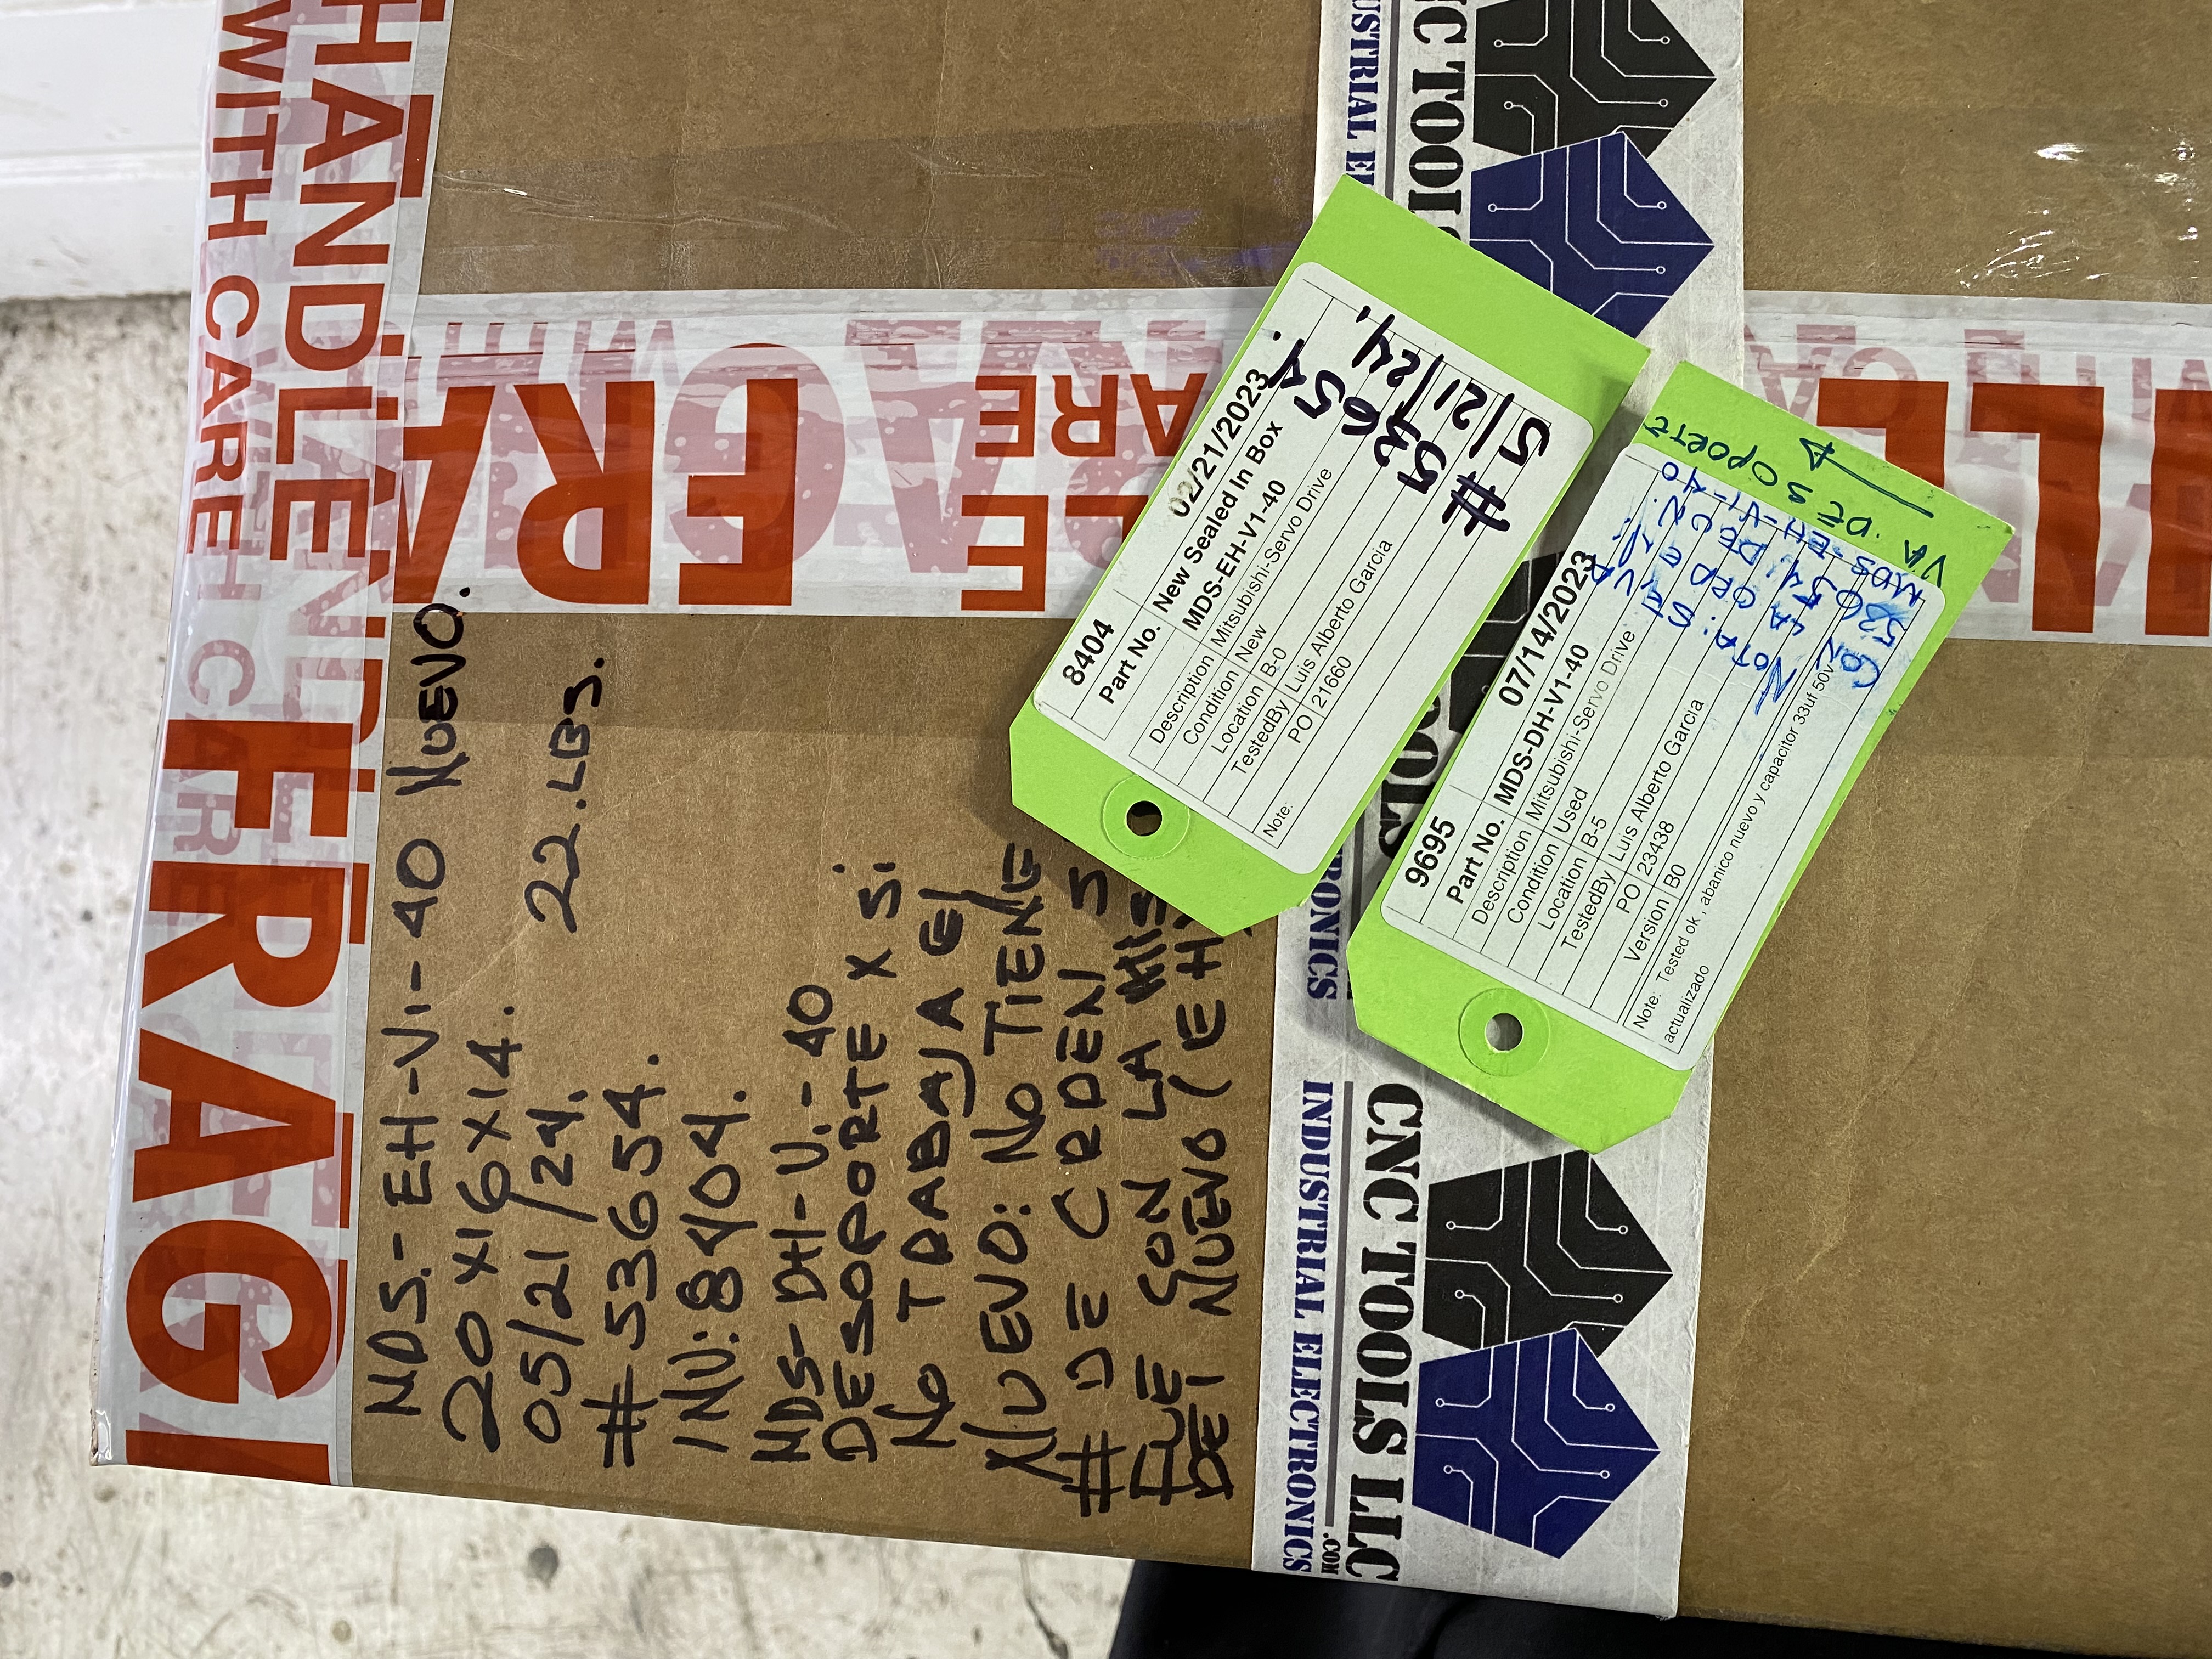 HANDLE
WITH CARE
FRAGI
MDS-EH-V1-40 NUEVO.
20X16X14. 22.LBS.
05/21/24.
#53654.
INV: 8404.
MDS-DH-V.-40
DESOPORTE X Si
No TRABAJA El
NUEVO: No TIENE
# DE CRDEN!
FUE CON LA MIS
DEl NUEVO (EH
8404 02/21/2023
Part No. New Sealed In Box
MDS-EH-V1-40
Description Mitsubishi-Servo Drive
Condition New
Location B-0
TestedBy Luis Alberto Garcia
PO 21660
Note:
53654.
#
5/21/24.
9695 07/14/2023
Part No. MDS-DH-V1-40
Description Mitsubishi-Servo Drive
Condition Used
Location B-5
TestedBy Luis Alberto Garcia
PO 23438
Version B0
Note: Tested ok , abanico nuevo y capacitor 33uf 50v
actualizado
VA DE SOPORTE
MDS-EH-V1-40
NOTA:
CON LA ORDEN
CNC TOOLS LLC
.COM
INDUSTRIAL ELECTRONICS